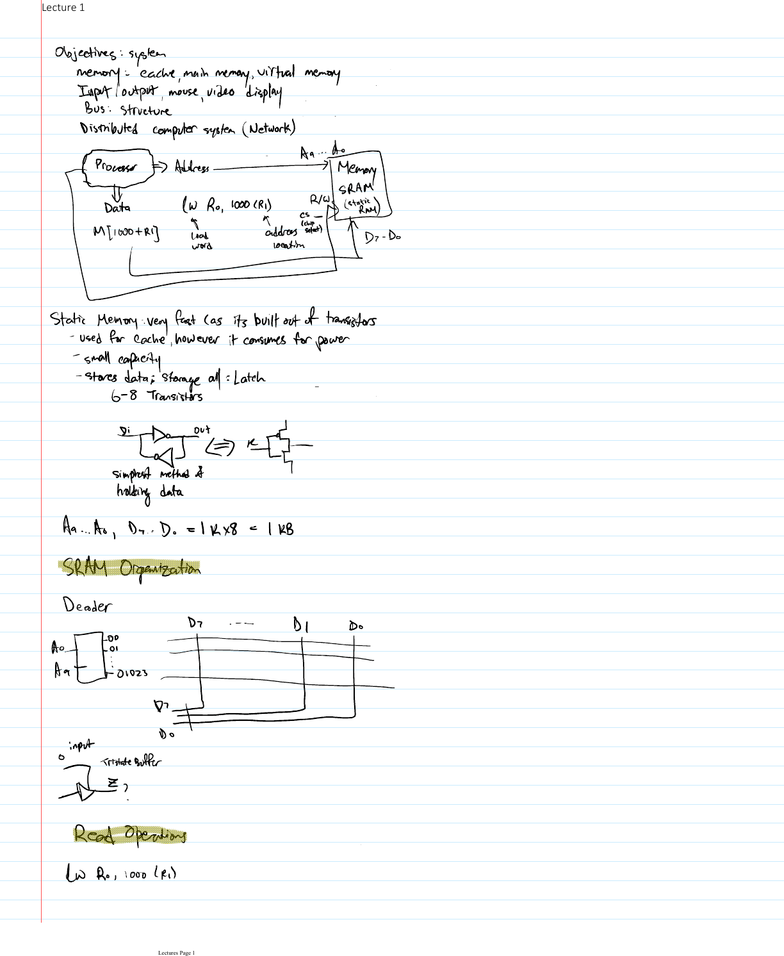 Lecture 1
Objectives: system
memory: cache, main memory, virtual memory
Input/output, mouse, video display
Bus: structure
Distributed computer system (Network)
A9...A0
Processor
Address
Memory
SRAM
(static RAM)
R/W
CS
(chip select)
Data
lw R0, 1000 (R1)
M[1000+R1]
load word
address location
D7-D0
Static Memory: very fast (as its built out of transistors
- used for cache, however it consumes for power
- small capacity
- stores data; storage all: Latch
6-8 Transistors
Di
out
simplest method of
holding data
A9...A0, D7..D0 = 1K x8 = 1KB
SRAM Organization
Deader
D7 ---- D1 D0
A0
A9
00
01
01023
D7
D0
input
0
Tristate Buffer
Z
Read Operations
lw R0, 1000 (R1)
Lectures Page 1